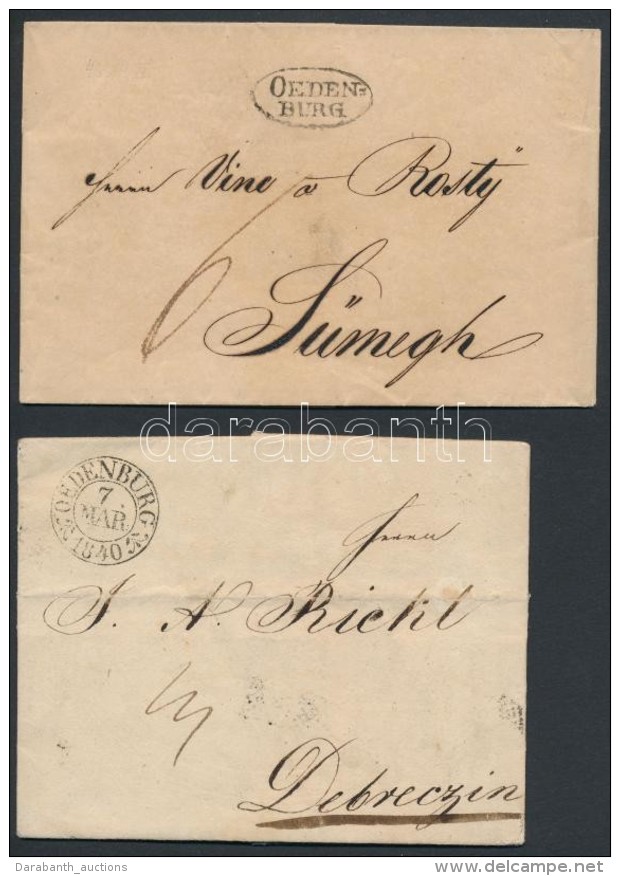 OEDEN=
BURG
Herrn Vinc a Rosty
6
Sümegh
darabanth
OEDENBURG
7
MAR.
1840
Herrn
J. A. Rickl
Debreczin
Darabanth_auctions
delcampe.net